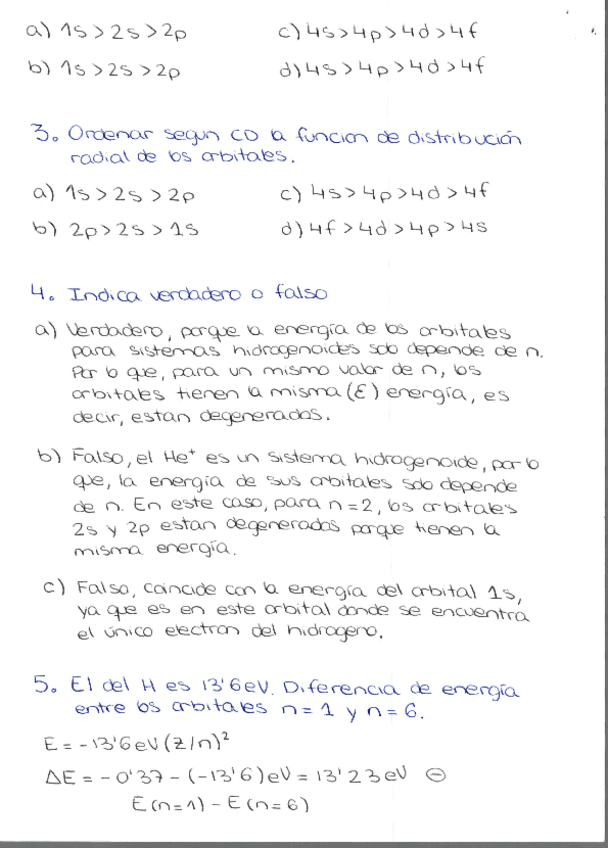 a) 1s > 2s > 2p c) 4s > 4p > 4d > 4f
b) 1s > 2s > 2p d) 4s > 4p > 4d > 4f
3. Ordenar segun CD la funcion de distribución
radial de los orbitales.
a) 1s > 2s > 2p c) 4s > 4p > 4d > 4f
b) 2p > 2s > 1s d) 4f > 4d > 4p > 4s
4. Indica verdadero o falso
a) Verdadero, porque la energía de los orbitales
para sistemas hidrogenoides solo depende de n.
Por lo que, para un mismo valor de n, los
orbitales tienen la misma (E) energía, es
decir, estan degenerados.
b) Falso, el He⁺ es un sistema hidrogenoide, por lo
que, la energía de sus orbitales solo depende
de n. En este caso, para n=2, los orbitales
2s y 2p estan degenerados porque tienen la
misma energía.
c) Falso, coincide con la energía del orbital 1s,
ya que es en este orbital donde se encuentra
el único electron del hidrogeno.
5. El del H es 13'6eV. Diferencia de energía
entre los orbitales n=1 y n=6.
E = -13'6 eV (z/n)²
ΔE = -0'37 - (-13'6) eV = 13'23 eV ⊖
E(n=1) - E(n=6)